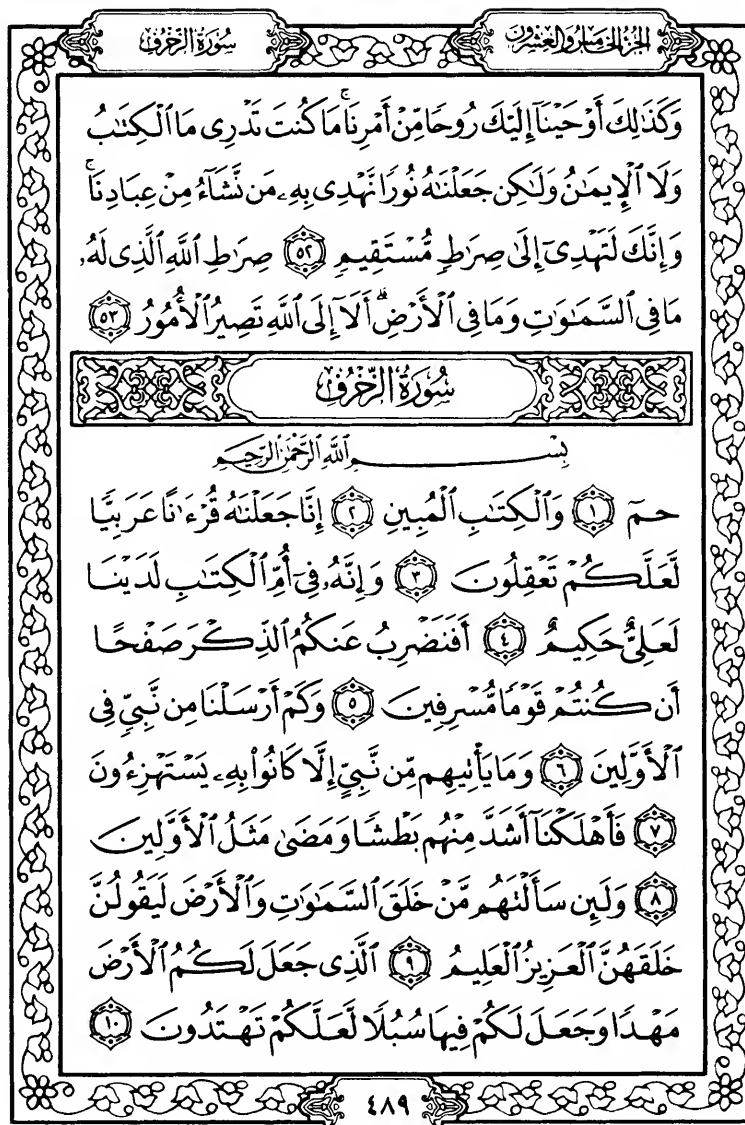 الجزء الخامس والعشرون سورة الزخرف
وَكَذَٰلِكَ أَوْحَيْنَآ إِلَيْكَ رُوحًا مِّنْ أَمْرِنَا ۚ مَا كُنتَ تَدْرِى مَا ٱلْكِتَـٰبُ
وَلَا ٱلْإِيمَـٰنُ وَلَـٰكِن جَعَلْنَـٰهُ نُورًا نَّهْدِى بِهِۦ مَن نَّشَآءُ مِنْ عِبَادِنَا ۚ
وَإِنَّكَ لَتَهْدِىٓ إِلَىٰ صِرَٰطٍ مُّسْتَقِيمٍ ٥٢ صِرَٰطِ ٱللَّهِ ٱلَّذِى لَهُۥ
مَا فِى ٱلسَّمَـٰوَٰتِ وَمَا فِى ٱلْأَرْضِ ۗ أَلَآ إِلَى ٱللَّهِ تَصِيرُ ٱلْأُمُورُ ٥٣
سُورَةُ الزُّخْرُفِ
بِسْمِ ٱللَّهِ ٱلرَّحْمَـٰنِ ٱلرَّحِيمِ
حمٓ ١ وَٱلْكِتَـٰبِ ٱلْمُبِينِ ٢ إِنَّا جَعَلْنَـٰهُ قُرْءَٰنًا عَرَبِيًّا
لَّعَلَّكُمْ تَعْقِلُونَ ٣ وَإِنَّهُۥ فِىٓ أُمِّ ٱلْكِتَـٰبِ لَدَيْنَا
لَعَلِىٌّ حَكِيمٌ ٤ أَفَنَضْرِبُ عَنكُمُ ٱلذِّكْرَ صَفْحًا
أَن كُنتُمْ قَوْمًا مُّسْرِفِينَ ٥ وَكَمْ أَرْسَلْنَا مِن نَّبِىٍّ فِى
ٱلْأَوَّلِينَ ٦ وَمَا يَأْتِيهِم مِّن نَّبِىٍّ إِلَّا كَانُوا۟ بِهِۦ يَسْتَهْزِءُونَ
٧ فَأَهْلَكْنَآ أَشَدَّ مِنْهُم بَطْشًا وَمَضَىٰ مَثَلُ ٱلْأَوَّلِينَ
٨ وَلَئِن سَأَلْتَهُم مَّنْ خَلَقَ ٱلسَّمَـٰوَٰتِ وَٱلْأَرْضَ لَيَقُولُنَّ
خَلَقَهُنَّ ٱلْعَزِيزُ ٱلْعَلِيمُ ٩ ٱلَّذِى جَعَلَ لَكُمُ ٱلْأَرْضَ
مَهْدًا وَجَعَلَ لَكُمْ فِيهَا سُبُلًا لَّعَلَّكُمْ تَهْتَدُونَ ١٠
٤٨٩